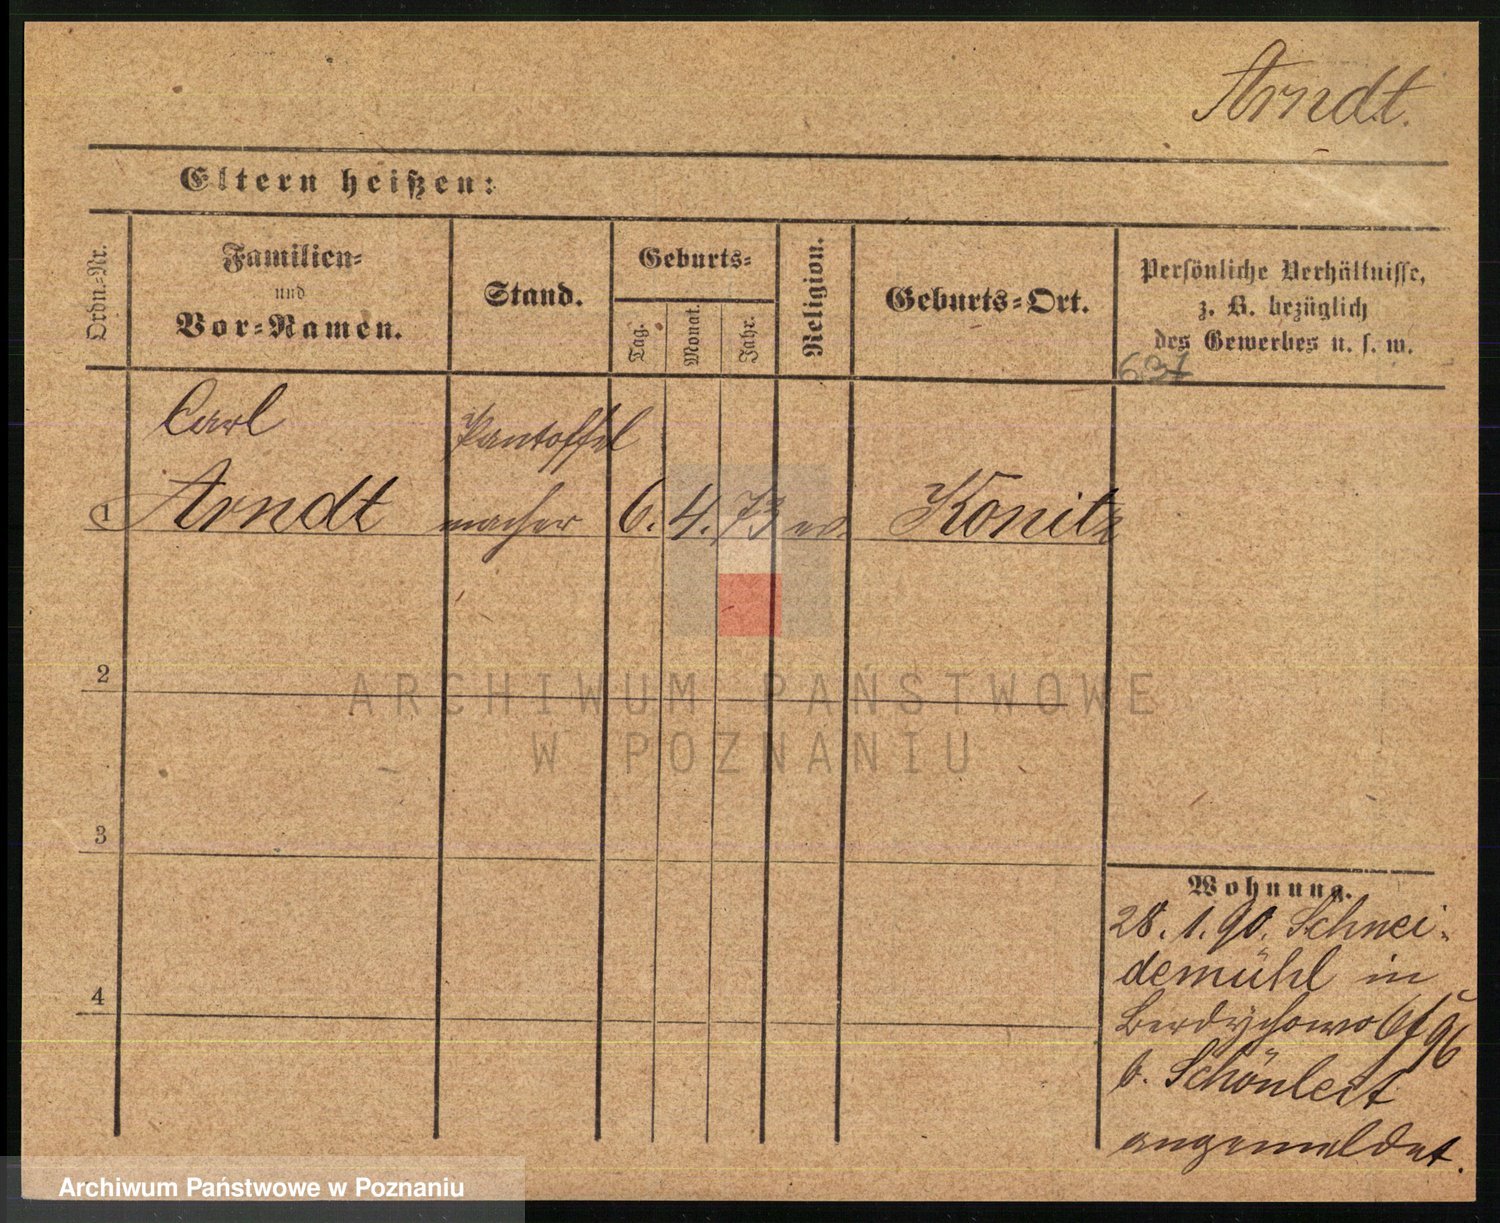 Arndt.
Eltern heißen:
Ordn.-Nr.
Familien-
und
Vor-Namen.
Stand.
Geburts-
Tag.
Monat.
Jahr.
Religion.
Geburts-Ort.
Persönliche Verhältnisse,
z. B. bezüglich
des Gewerbes u. s. w.
637
Carl
Pantoffel
1 Arndt macher 6. 4. 73 ev. Konitz
2
3
4
Wohnung.
28. 1. 90. Schnei-
demühl in
Berdychowo
b. Schönleit
angemeldet.
ARCHIWUM PAŃSTWOWE
W POZNANIU
Archiwum Państwowe w Poznaniu